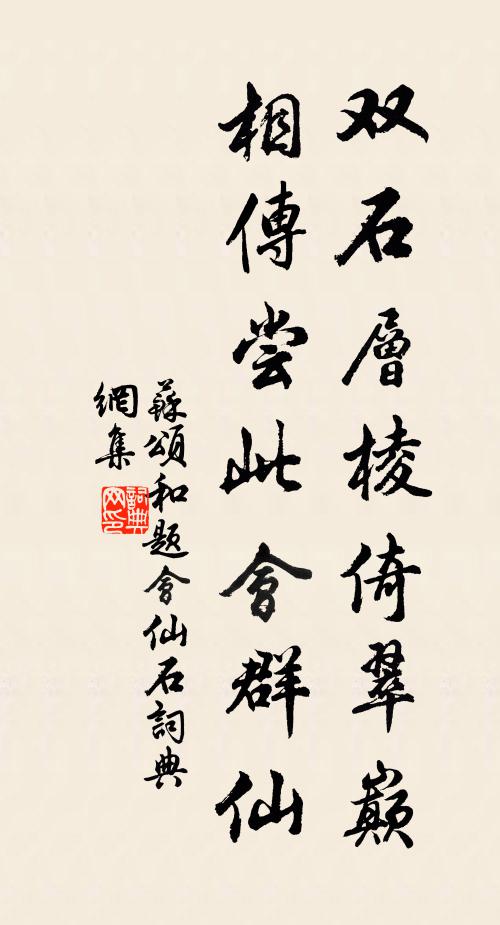 双石層棱倚翠巔
相傳尝此會群仙
蘇頌和題會仙石詞典
網集
詞典
网印